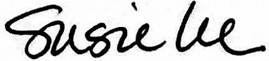 Susie Lee